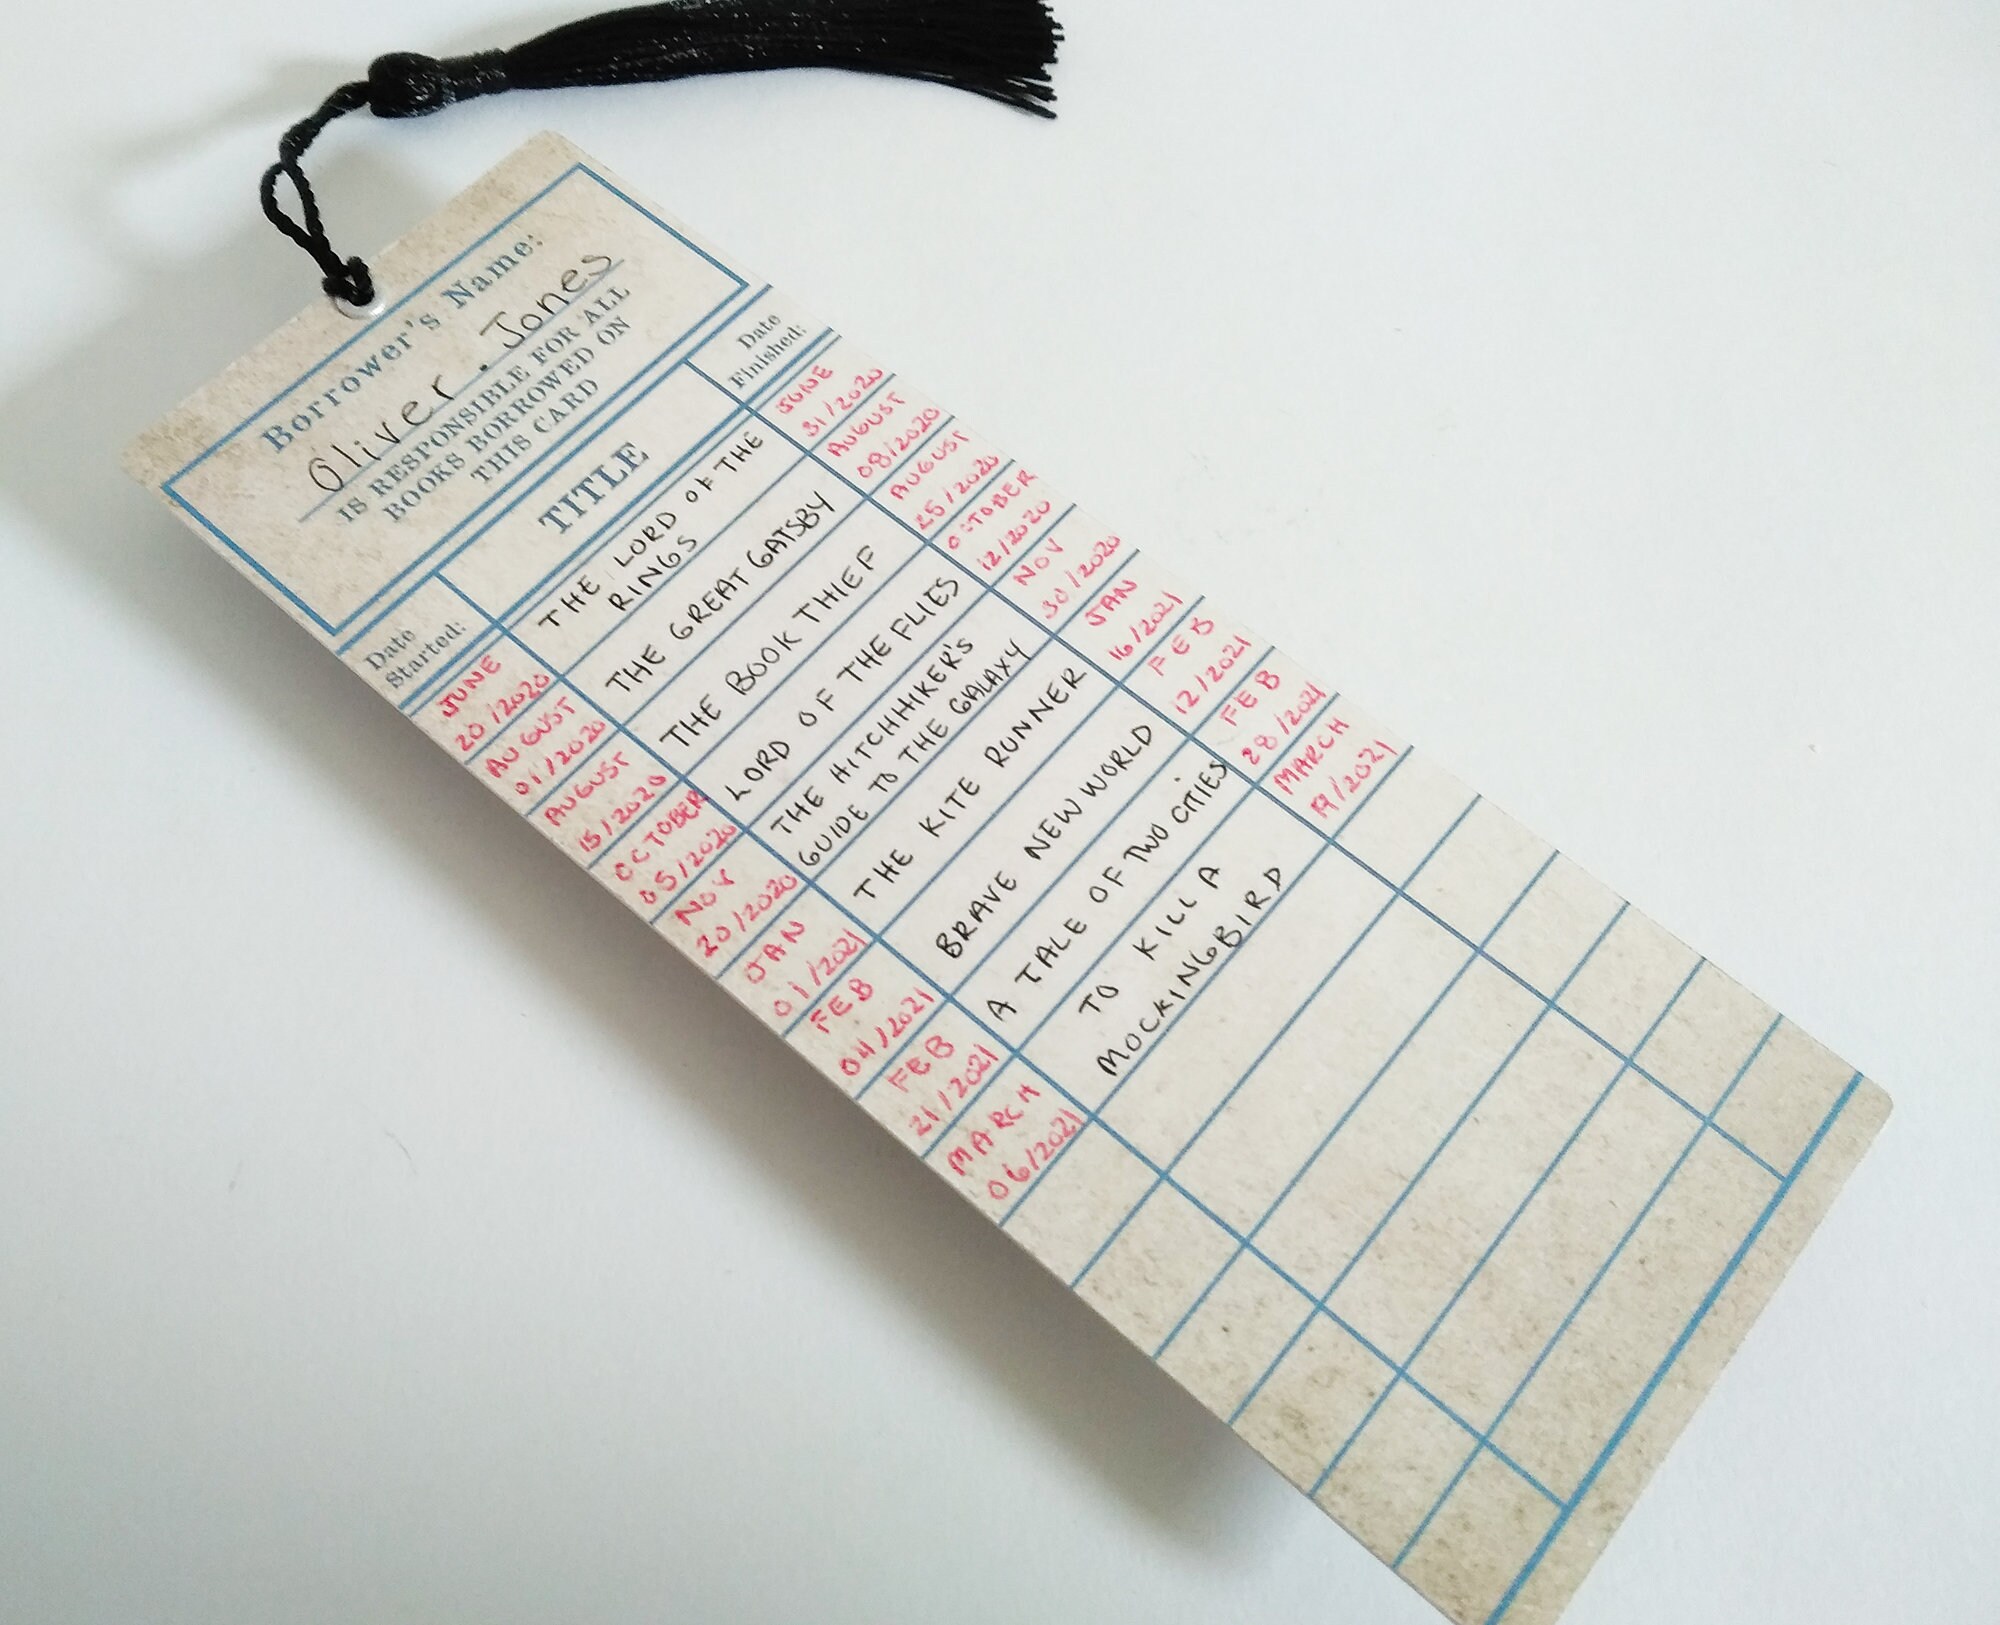 Borrower's Name:
Oliver. Jones
IS RESPONSIBLE FOR ALL
BOOKS BORROWED ON
THIS CARD
Date
Started:
TITLE
Date
Finished:
JUNE
20/2020
THE LORD OF THE
RINGS
JUNE
31/2020
AUGUST
01/2020
THE GREAT GATSBY
AUGUST
08/2020
AUGUST
15/2020
THE BOOK THIEF
AUGUST
25/2020
OCTOBER
05/2020
LORD OF THE FLIES
OCTOBER
12/2020
NOV
20/2020
THE HITCHHIKER'S
GUIDE TO THE GALAXY
NOV
30/2020
JAN
01/2021
THE KITE RUNNER
JAN
16/2021
FEB
04/2021
BRAVE NEW WORLD
FEB
12/2021
FEB
21/2021
A TALE OF TWO CITIES
FEB
28/2021
MARCH
06/2021
TO KILL A
MOCKINGBIRD
MARCH
19/2021